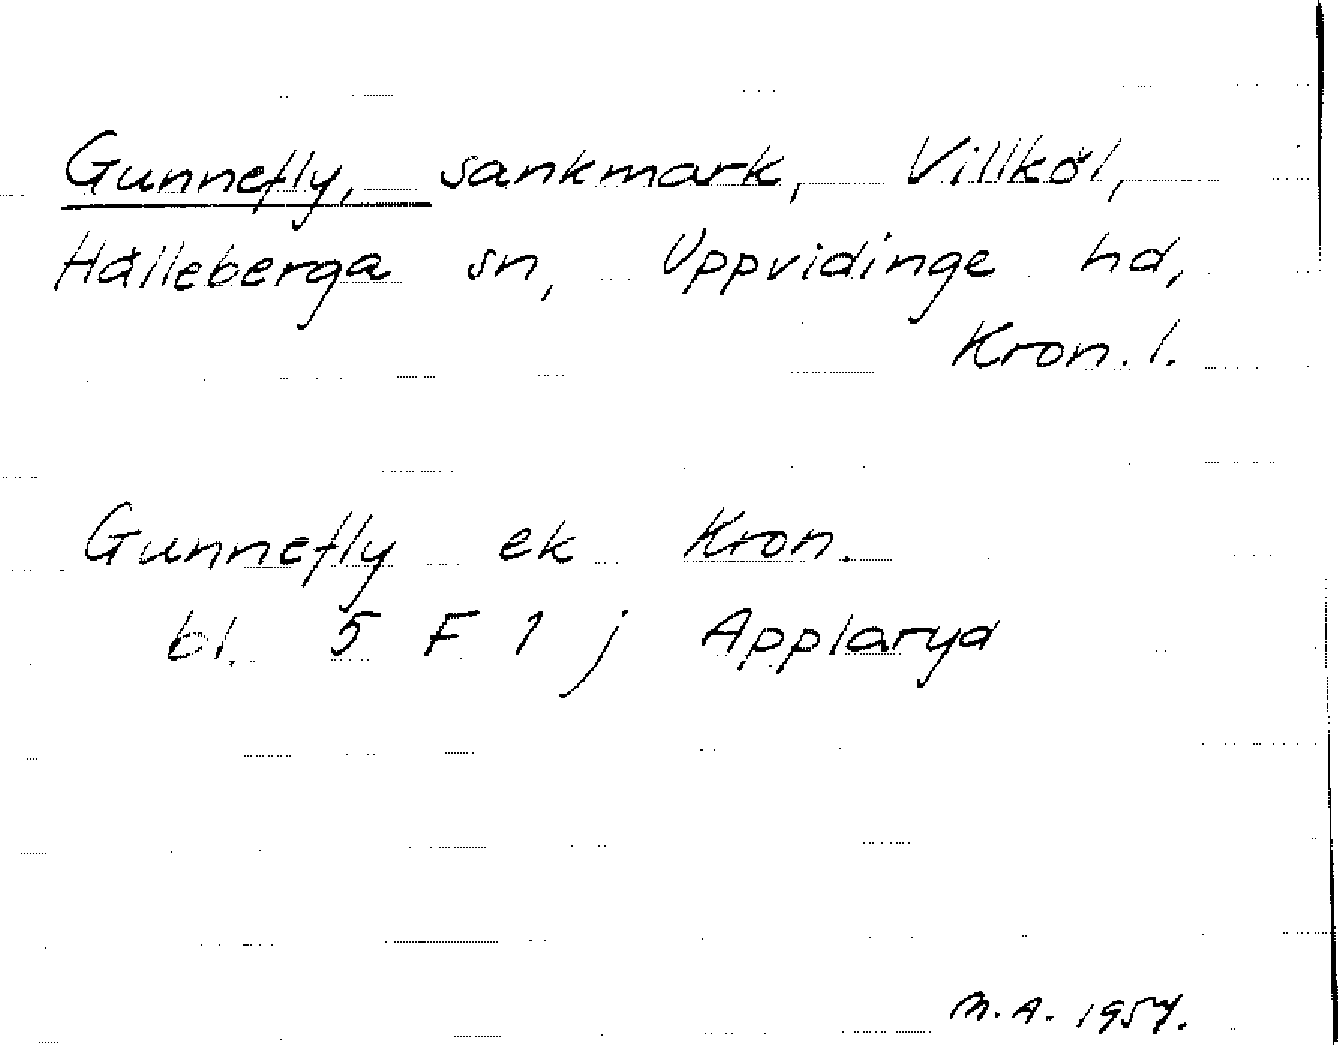 Gunnefly, sankmark, Villköl,
Hälleberga sn, Uppvidinge hd,
Kron. l.
Gunnefly ek Kron.
bl. 5 F 1 j Applaryd
M.A. 1957.